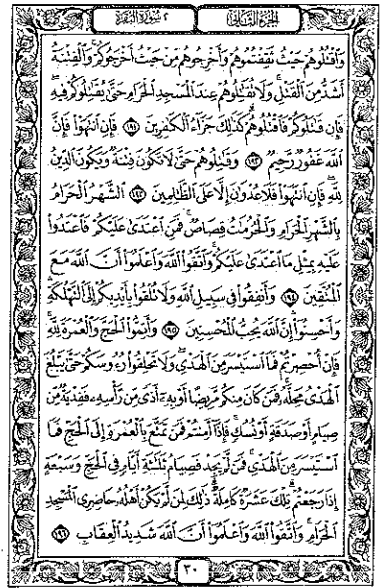 الجزء الثاني
٢ سورة البقرة
وَاقْتُلُوهُمْ حَيْثُ ثَقِفْتُمُوهُمْ وَأَخْرِجُوهُم مِّنْ حَيْثُ أَخْرَجُوكُمْ ۚ وَالْفِتْنَةُ
أَشَدُّ مِنَ الْقَتْلِ ۚ وَلَا تُقَاتِلُوهُمْ عِندَ الْمَسْجِدِ الْحَرَامِ حَتَّىٰ يُقَاتِلُوكُمْ فِيهِ ۖ
فَإِن قَاتَلُوكُمْ فَاقْتُلُوهُمْ ۗ كَذَٰلِكَ جَزَاءُ الْكَافِرِينَ ١٩١ فَإِنِ انتَهَوْا فَإِنَّ
اللَّهَ غَفُورٌ رَّحِيمٌ ١٩٢ وَقَاتِلُوهُمْ حَتَّىٰ لَا تَكُونَ فِتْنَةٌ وَيَكُونَ الدِّينُ
لِلَّهِ ۖ فَإِنِ انتَهَوْا فَلَا عُدْوَانَ إِلَّا عَلَى الظَّالِمِينَ ١٩٣ الشَّهْرُ الْحَرَامُ
بِالشَّهْرِ الْحَرَامِ وَالْحُرُمَاتُ قِصَاصٌ ۚ فَمَنِ اعْتَدَىٰ عَلَيْكُمْ فَاعْتَدُوا
عَلَيْهِ بِمِثْلِ مَا اعْتَدَىٰ عَلَيْكُمْ ۚ وَاتَّقُوا اللَّهَ وَاعْلَمُوا أَنَّ اللَّهَ مَعَ
الْمُتَّقِينَ ١٩٤ وَأَنفِقُوا فِي سَبِيلِ اللَّهِ وَلَا تُلْقُوا بِأَيْدِيكُمْ إِلَى التَّهْلُكَةِ
وَأَحْسِنُوا ۛ إِنَّ اللَّهَ يُحِبُّ الْمُحْسِنِينَ ١٩٥ وَأَتِمُّوا الْحَجَّ وَالْعُمْرَةَ لِلَّهِ ۚ
فَإِنْ أُحْصِرْتُمْ فَمَا اسْتَيْسَرَ مِنَ الْهَدْيِ ۖ وَلَا تَحْلِقُوا رُءُوسَكُمْ حَتَّىٰ يَبْلُغَ
الْهَدْيُ مَحِلَّهُ ۚ فَمَن كَانَ مِنكُم مَّرِيضًا أَوْ بِهِ أَذًى مِّن رَّأْسِهِ فَفِدْيَةٌ مِّن
صِيَامٍ أَوْ صَدَقَةٍ أَوْ نُسُكٍ ۚ فَإِذَا أَمِنتُمْ فَمَن تَمَتَّعَ بِالْعُمْرَةِ إِلَى الْحَجِّ فَمَا
اسْتَيْسَرَ مِنَ الْهَدْيِ ۚ فَمَن لَّمْ يَجِدْ فَصِيَامُ ثَلَاثَةِ أَيَّامٍ فِي الْحَجِّ وَسَبْعَةٍ
إِذَا رَجَعْتُمْ ۗ تِلْكَ عَشَرَةٌ كَامِلَةٌ ۗ ذَٰلِكَ لِمَن لَّمْ يَكُنْ أَهْلُهُ حَاضِرِي الْمَسْجِدِ
الْحَرَامِ ۚ وَاتَّقُوا اللَّهَ وَاعْلَمُوا أَنَّ اللَّهَ شَدِيدُ الْعِقَابِ ١٩٦
٣٠